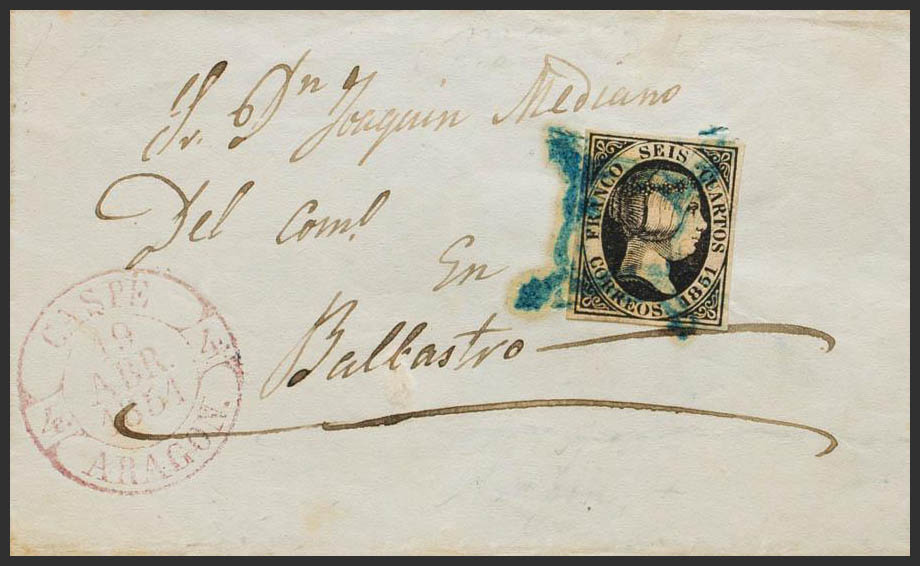 Sr. Dn Joaquin Mediano
Del Coml.
En
Balbastro
FRANCO SEIS CUARTOS
CORREOS 1851
CASPE
19
ABR
1851
ARAGON.